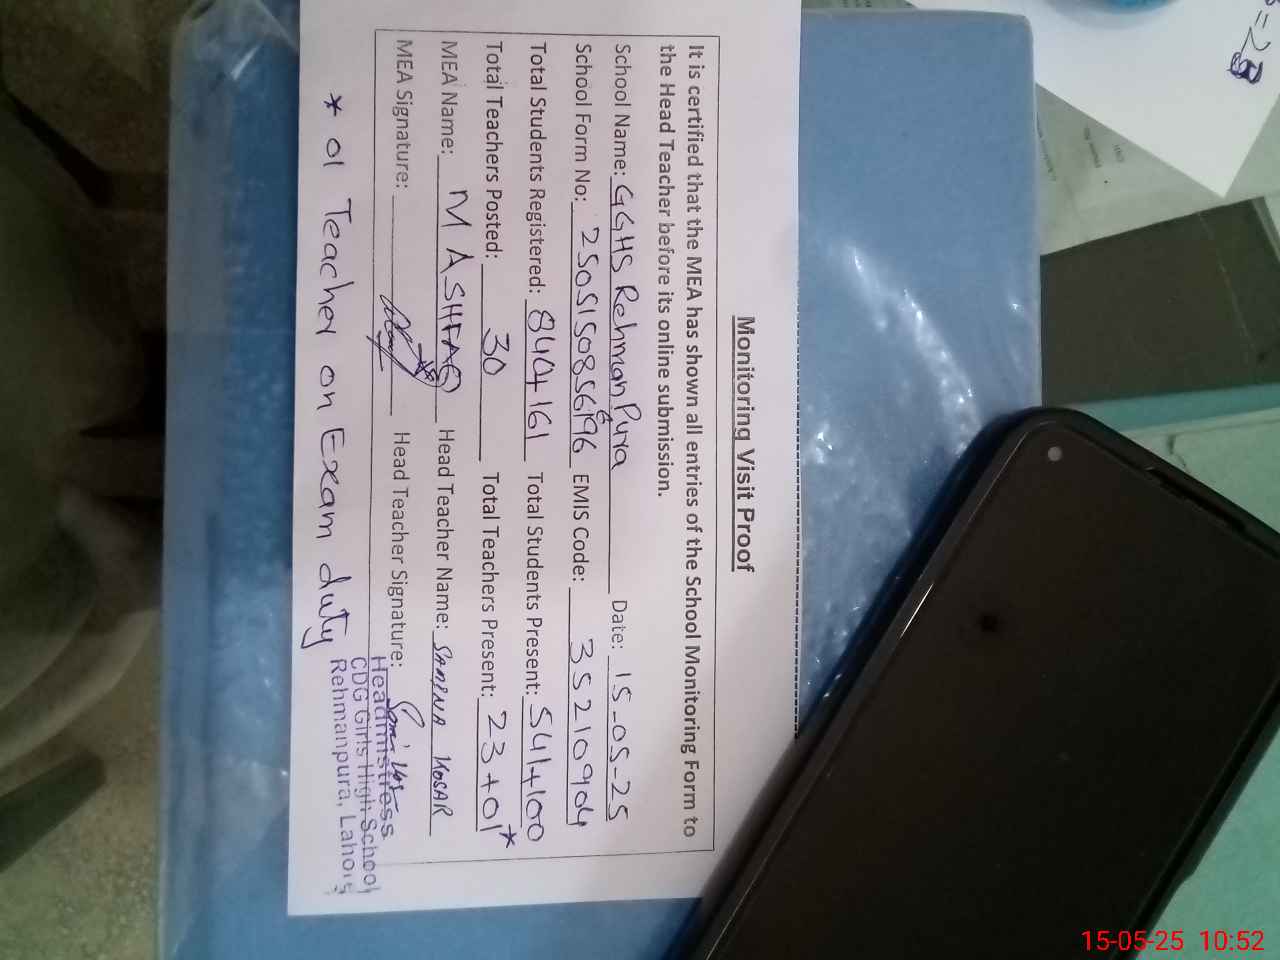 Monitoring Visit Proof
It is certified that the MEA has shown all entries of the School Monitoring Form to
the Head Teacher before its online submission.
School Name: GGHS Rehman Pura Date: 15-05-25
School Form No: 2505150856196 EMIS Code: 35210904
Total Students Registered: 840+161 Total Students Present: 541+100
Total Teachers Posted: 30 Total Teachers Present: 23+01*
MEA Name: M ASHFAQ Head Teacher Name: SAMINA KOSAR
MEA Signature: Head Teacher Signature:
Headmistress
CDG Girls High School
Rehmanpura, Lahore
* 01 Teacher on Exam duty
= 28
15-05-25 10:52